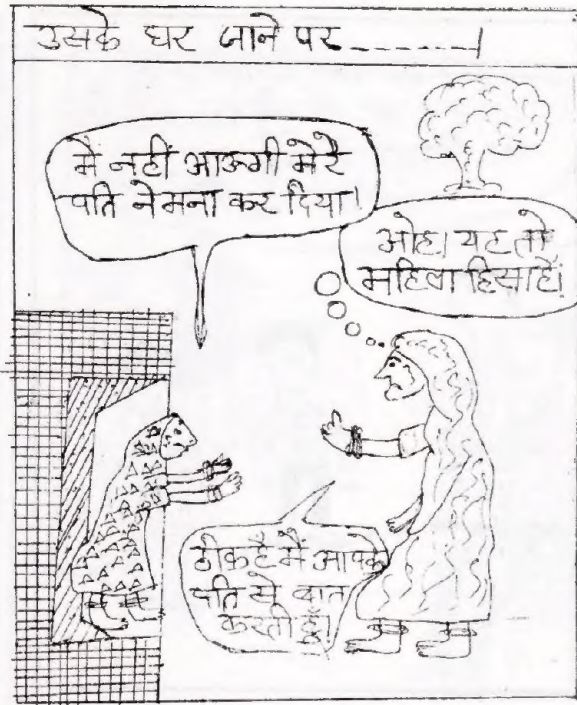 उसके घर जाने पर-------।
मैं नहीं आऊगी मेरे
पति ने मना कर दिया!
ओह! यह तो
महिला हिंसा है!
ठीक है मैं आपके
पति से बात
करती हूँ!